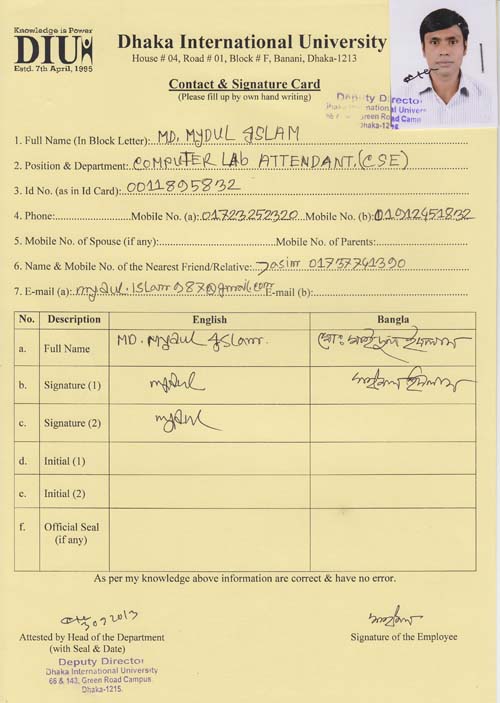 Knowledge is Power
DIU
Estd. 7th April, 1995
Dhaka International University
House # 04, Road # 01, Block # F, Banani, Dhaka-1213
Contact & Signature Card
(Please fill up by own hand writing)
Deputy Director
Dhaka International Univers
66 Green Road Camp
Dhaka-1215
1. Full Name (In Block Letter): MD. MYDUL ISLAM
2. Position & Department: COMPUTER Lab ATTENDANT.(CSE)
3. Id No. (as in Id Card): 0011895832
4. Phone: Mobile No. (a): 01723252320 Mobile No. (b): 01912451832
5. Mobile No. of Spouse (if any): Mobile No. of Parents:
6. Name & Mobile No. of the Nearest Friend/Relative: Jasim 01737741390
7. E-mail (a): mydul.islam987@gmail.com E-mail (b):
No. Description English Bangla
a. Full Name MD. Mydul Islam. মোঃ মাইদুল ইসলাম
b. Signature (1) mydul
c. Signature (2) mydul
d. Initial (1)
e. Initial (2)
f. Official Seal
(if any)
As per my knowledge above information are correct & have no error.
Attested by Head of the Department
(with Seal & Date)
Signature of the Employee
Deputy Director
Dhaka International University
66 & 143, Green Road Campus
Dhaka-1215.